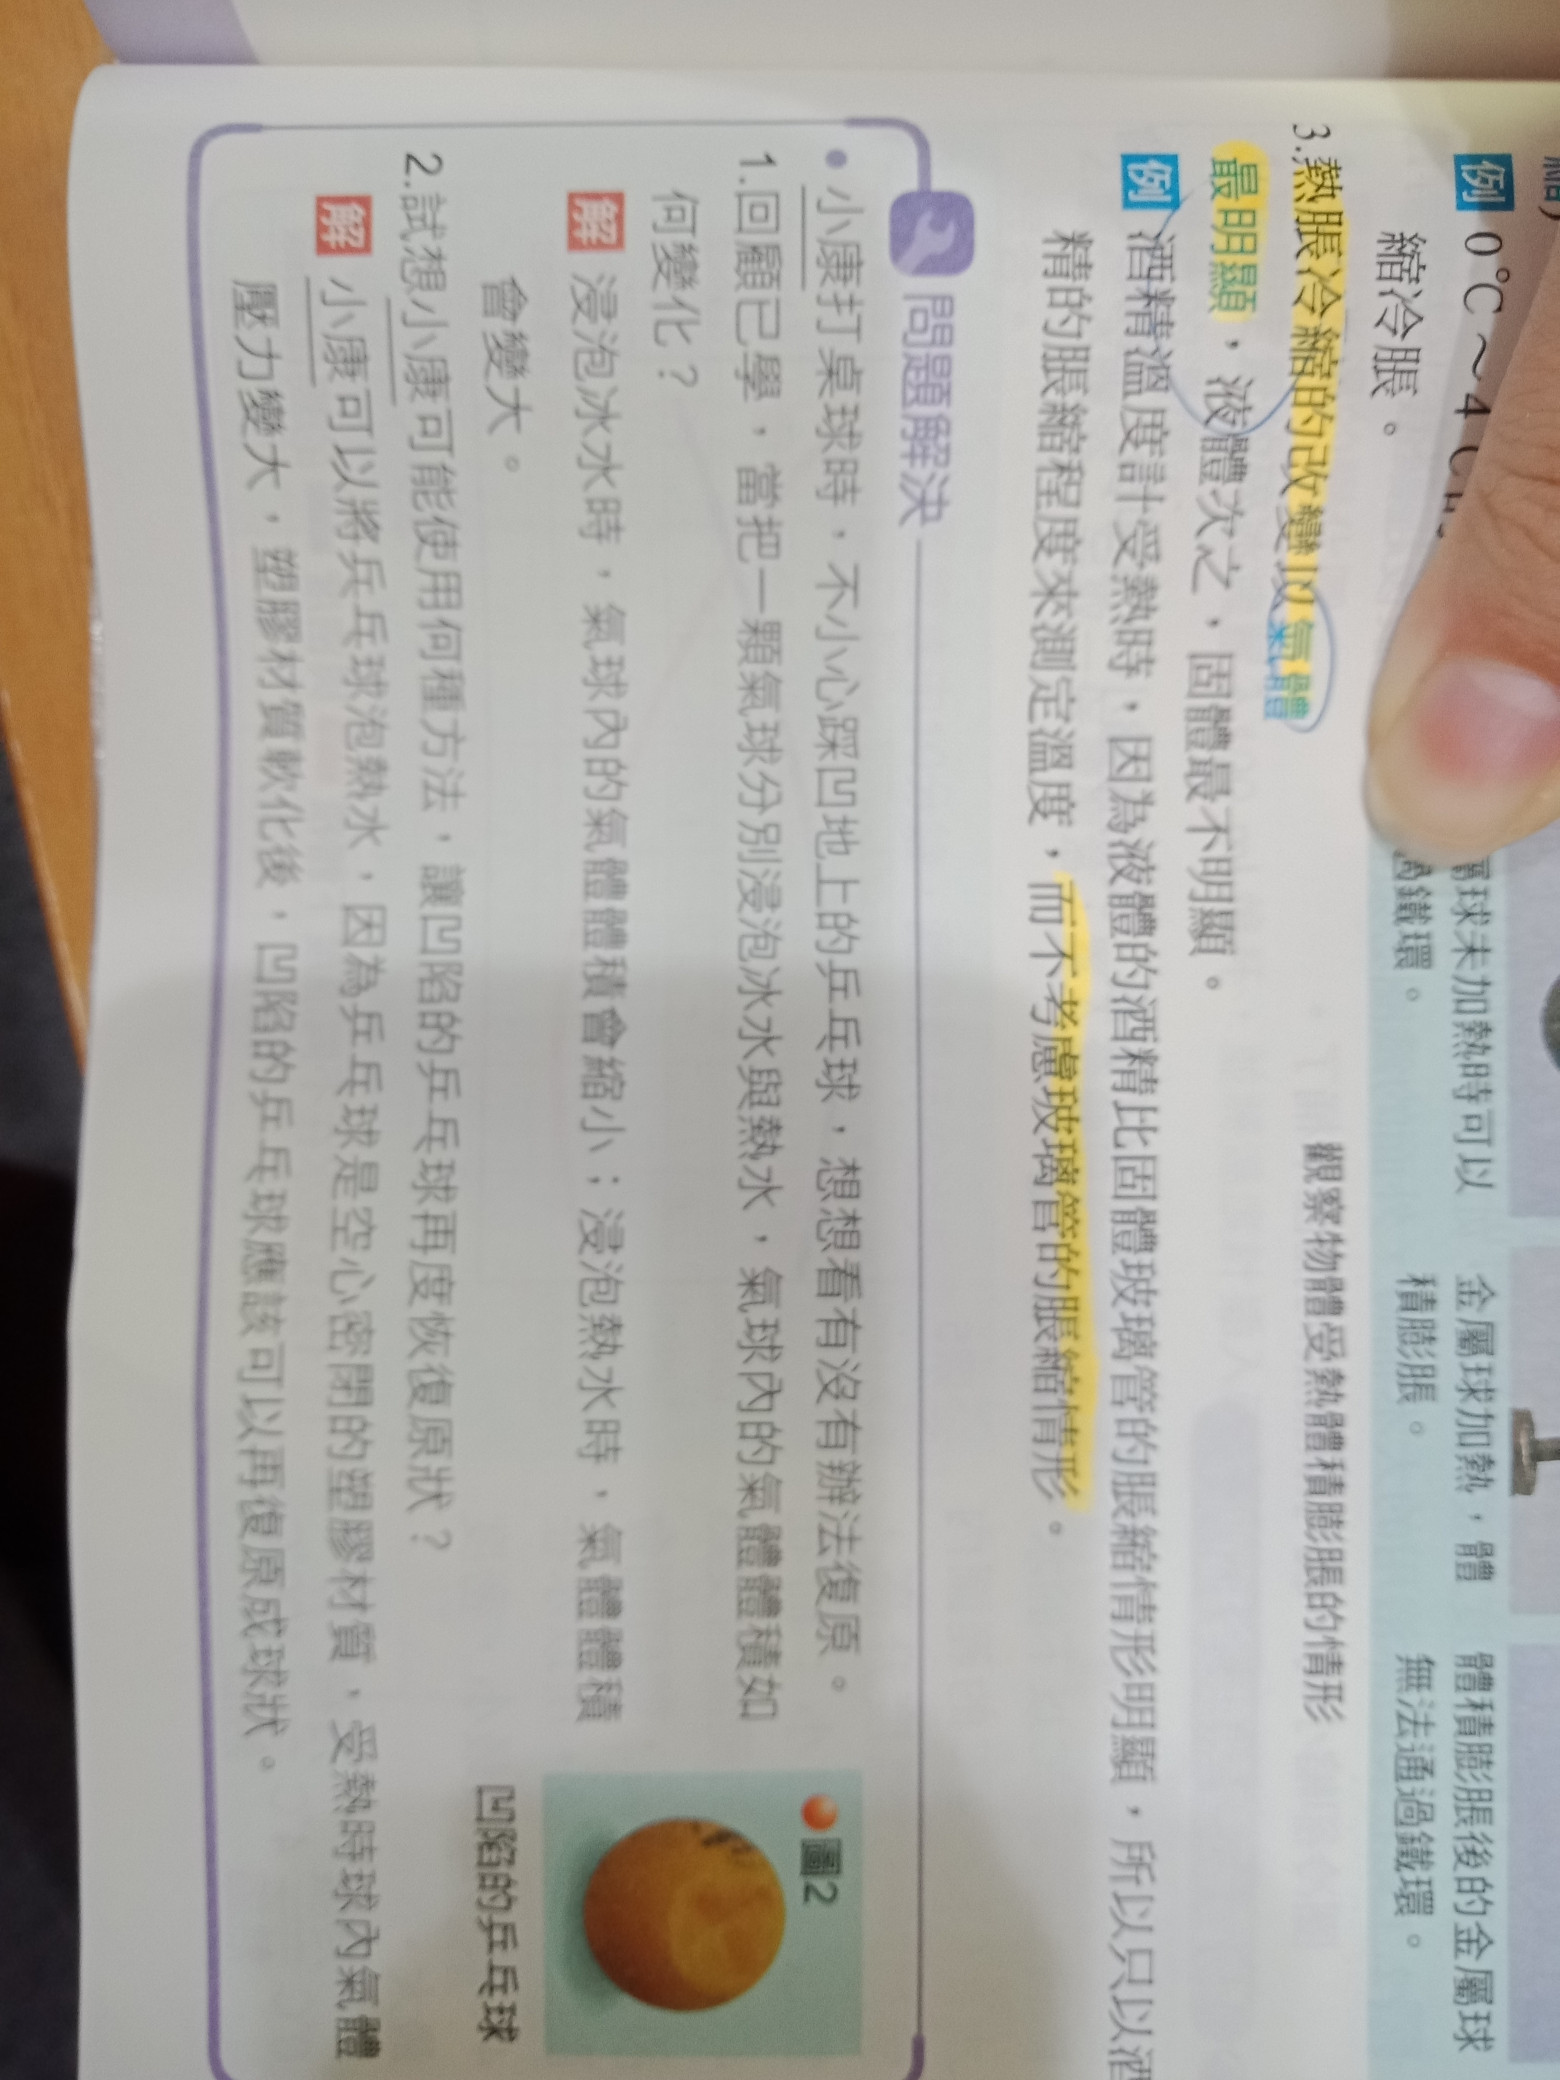 例 0℃～4
縮冷脹。
屬球未加熱時可以
過鐵環。
金屬球加熱，體
積膨脹。
體積膨脹後的金屬球
無法通過鐵環。
觀察物體受熱體積膨脹的情形
3.熱脹冷縮的改變以氣體
最明顯，液體次之，固體最不明顯。
例 酒精溫度計受熱時，因為液體的酒精比固體玻璃管的脹縮情形明顯，所以只以酒
精的脹縮程度來測定溫度，而不考慮玻璃管的脹縮情形。
問題解決
• 小康打桌球時，不小心踩凹地上的乒乓球，想想看有沒有辦法復原。
1.回顧已學，當把一顆氣球分別浸泡冰水與熱水，氣球內的氣體體積如
何變化？
解 浸泡冰水時，氣球內的氣體體積會縮小；浸泡熱水時，氣體體積
會變大。
圖2
凹陷的乒乓球
2.試想小康可能使用何種方法，讓凹陷的乒乓球再度恢復原狀？
解 小康可以將乒乓球泡熱水，因為乒乓球是空心密閉的塑膠材質，受熱時球內氣體
壓力變大，塑膠材質軟化後，凹陷的乒乓球應該可以再復原成球狀。